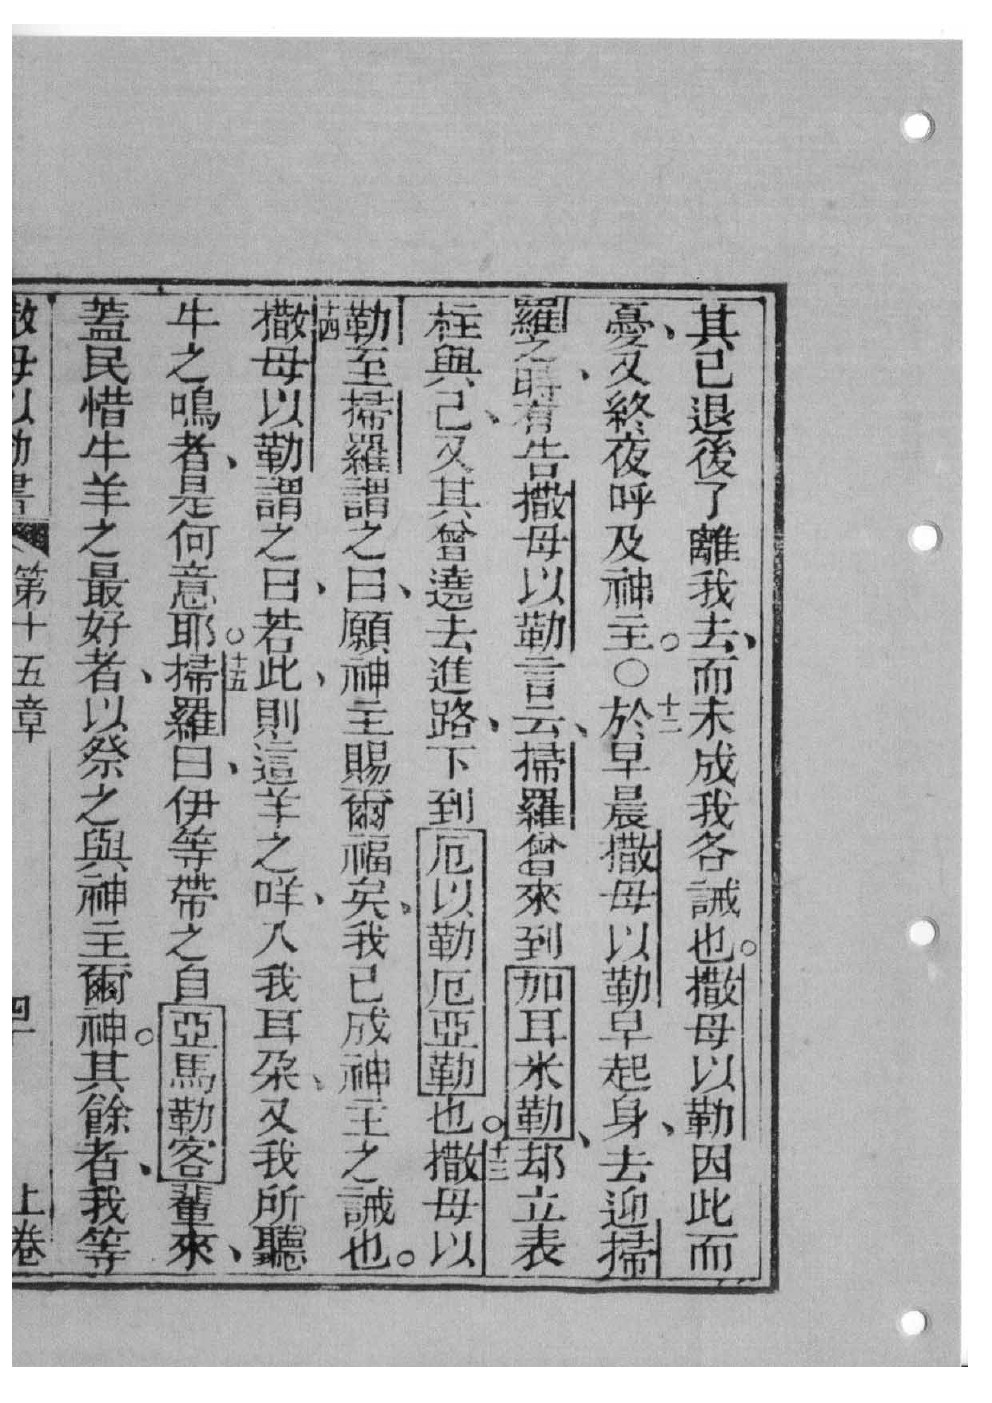 其已退後了離我去、而未成我各誡也。撒母以勒因此而
憂、又終夜呼及神主。○十二於早晨撒母以勒早起身、去迎掃
羅之時、有告撒母以勒言云、掃羅曾來到加耳米勒、却立表
柱與己、又其曾遶去進路、下到厄以勒厄亞勒也。十三撒母以
勒至掃羅謂之曰、願神主賜爾福矣、我已成神主之誡也。
十四撒母以勒謂之曰、若此、則這羊之咩、入我耳朶、又我所聽
牛之鳴者、是何意耶。十五掃羅曰、伊等帶之自亞馬勒客輩來、
蓋民惜牛羊之最好者、以祭之與神主爾神。其餘者、我等
撒母以勒書 第十五章 四一 上卷